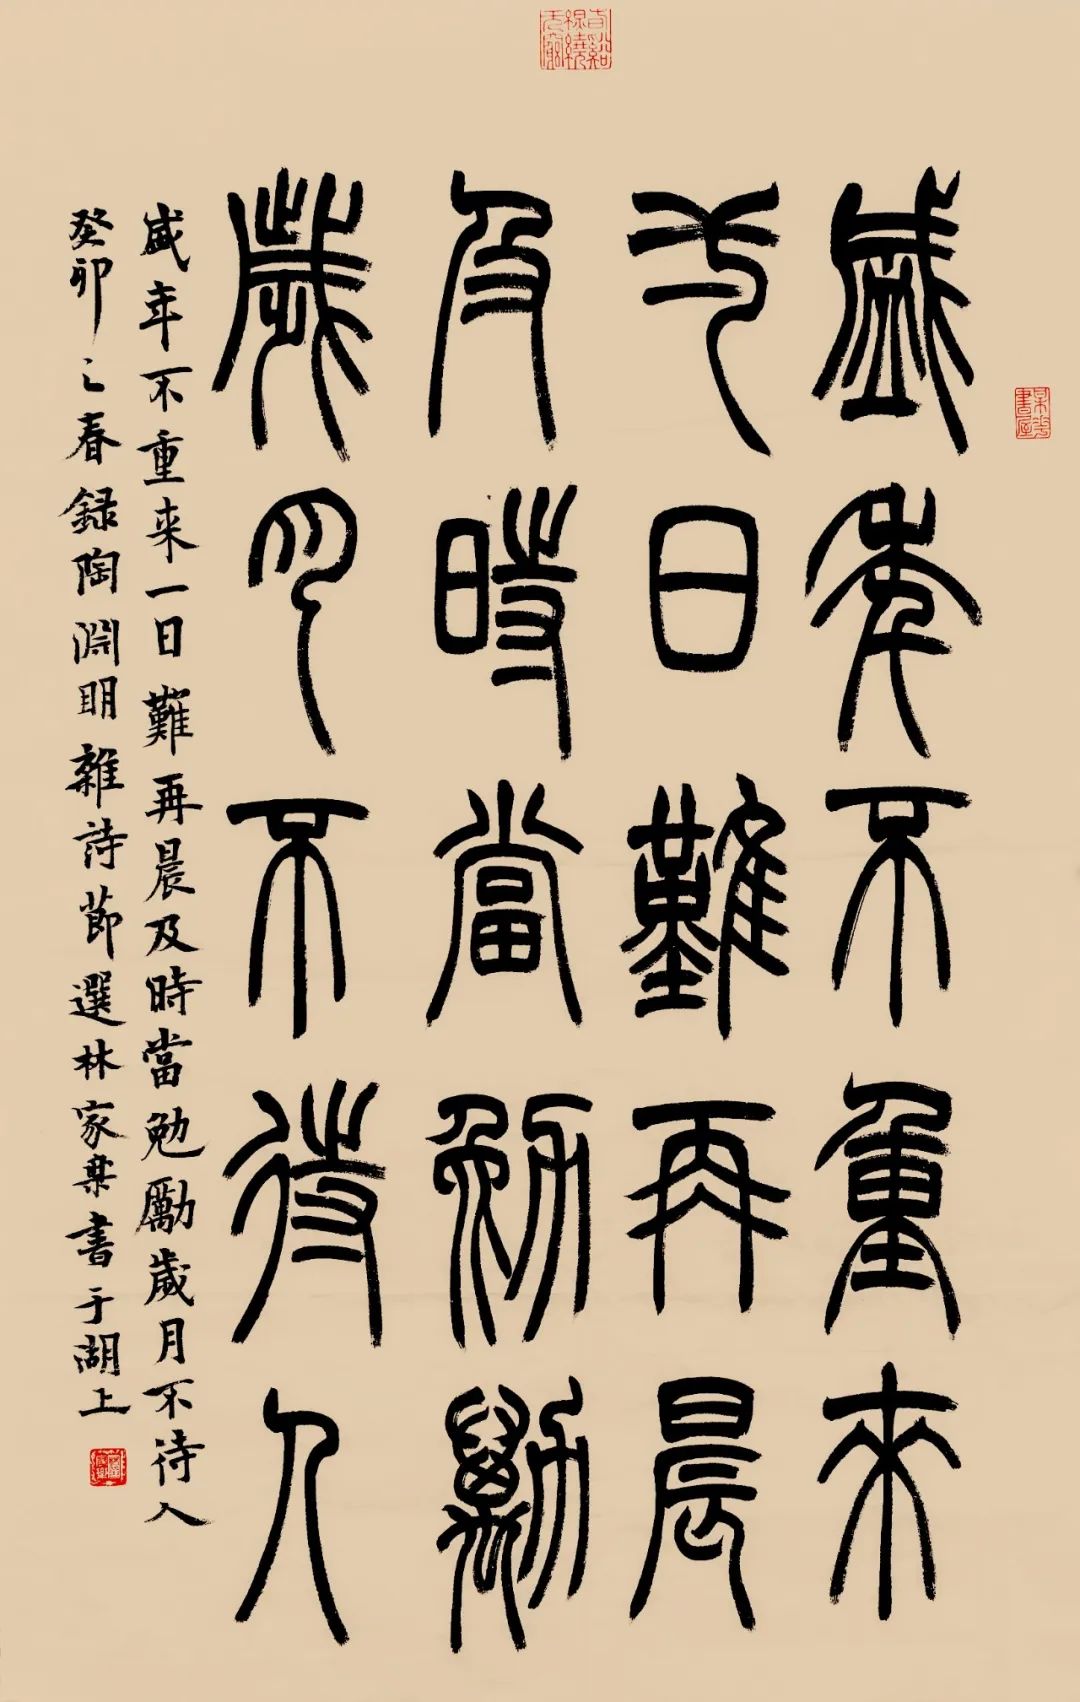 盛年不重來
弌日難再晨
及時當勉勵
歲月不待人
盛年不重来一日難再晨及時當勉勵歲月不待人
癸卯之春録陶淵明雜詩節選林家書于湖上